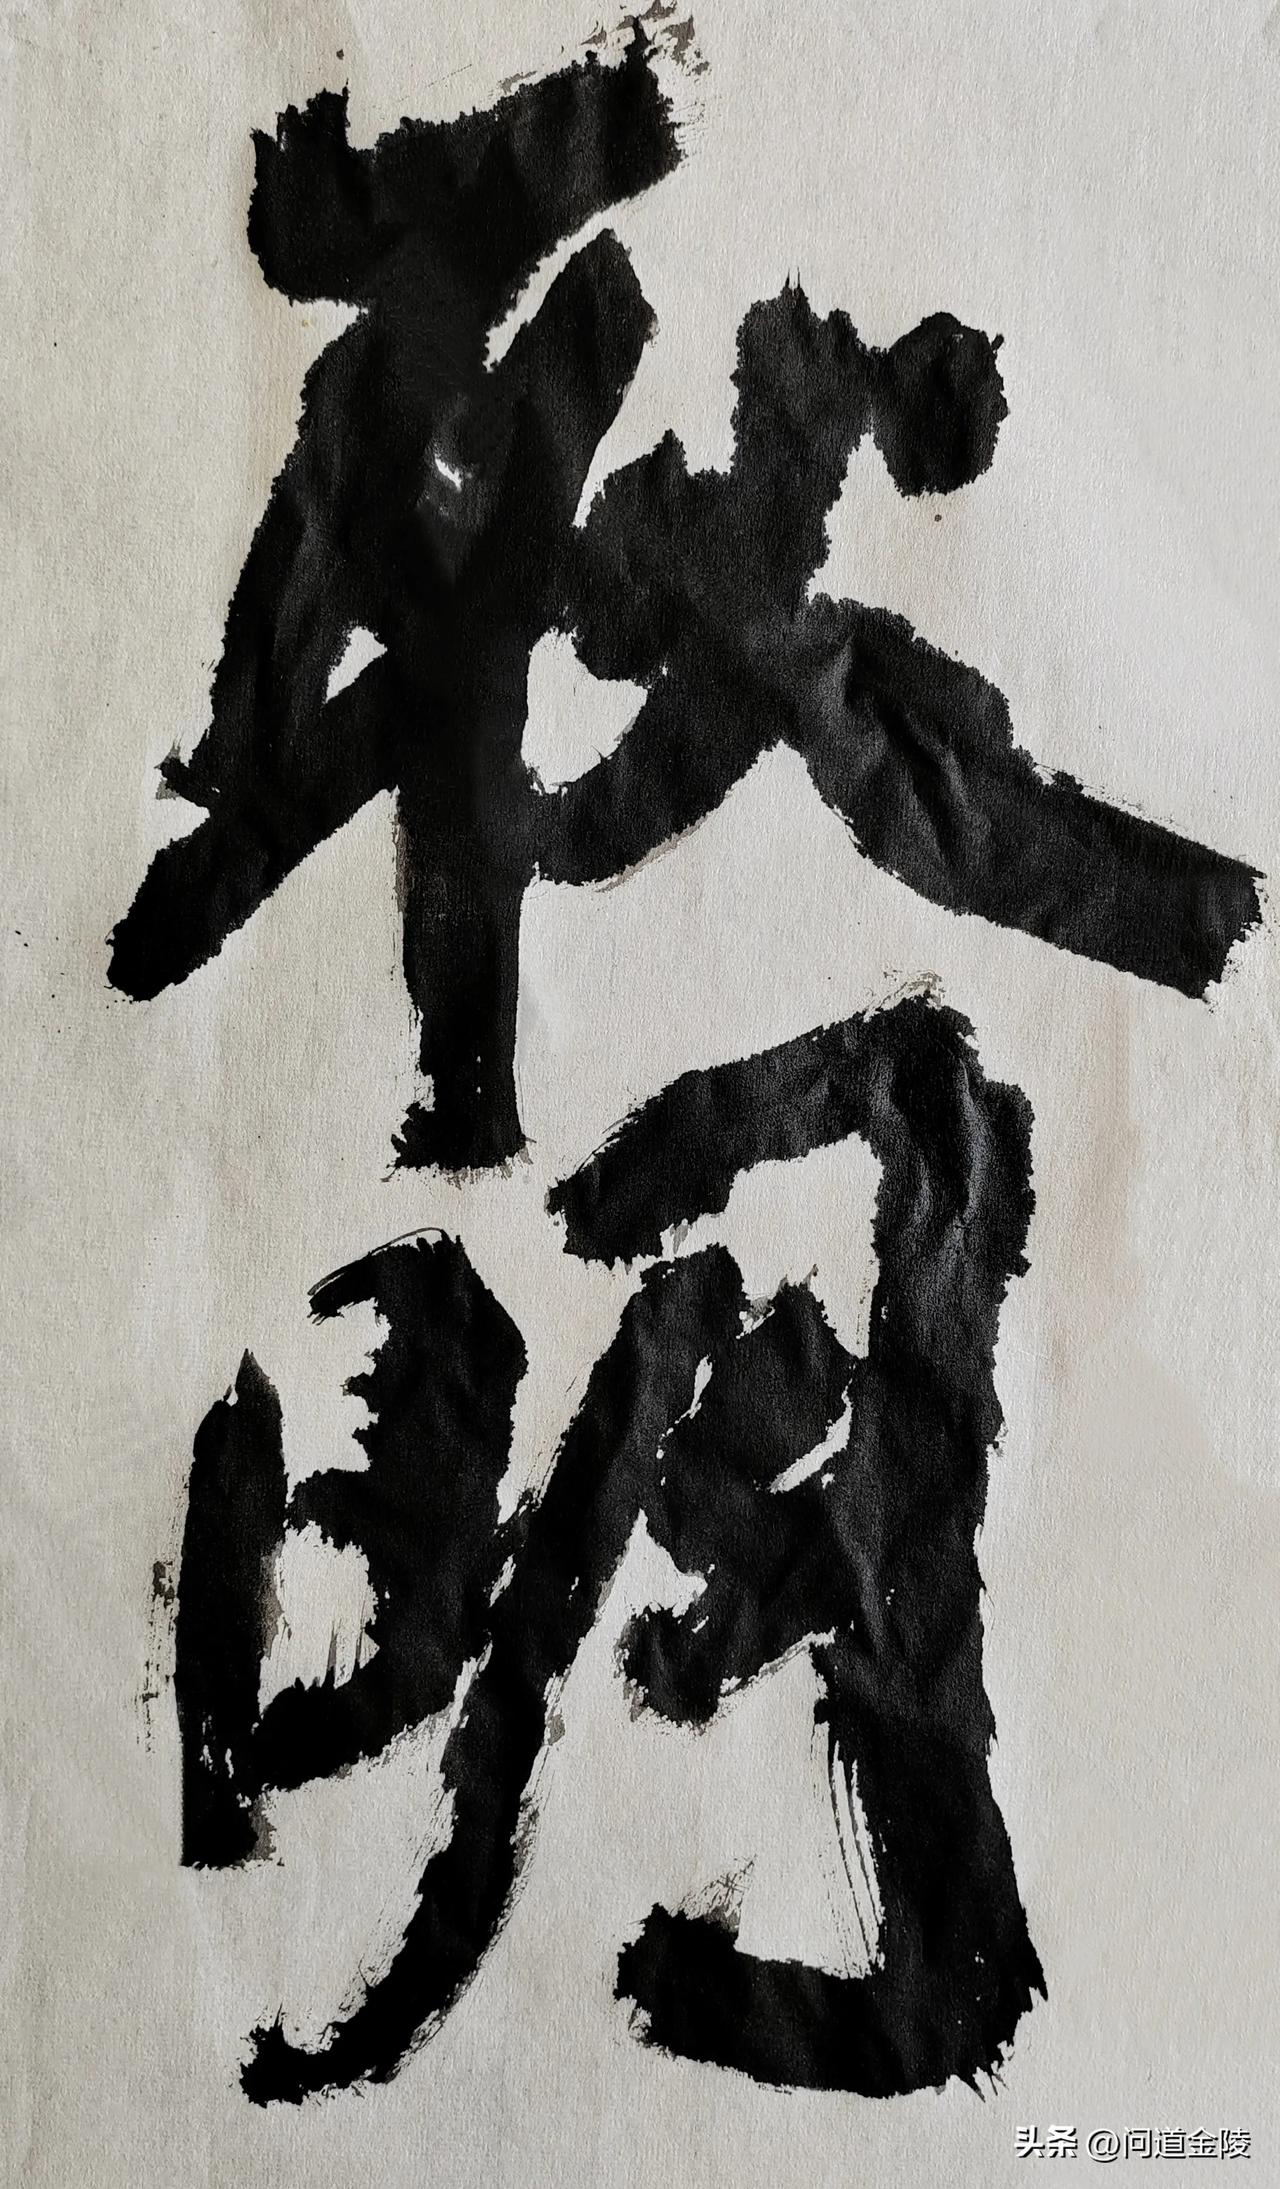 秋明
头条 @问道金陵